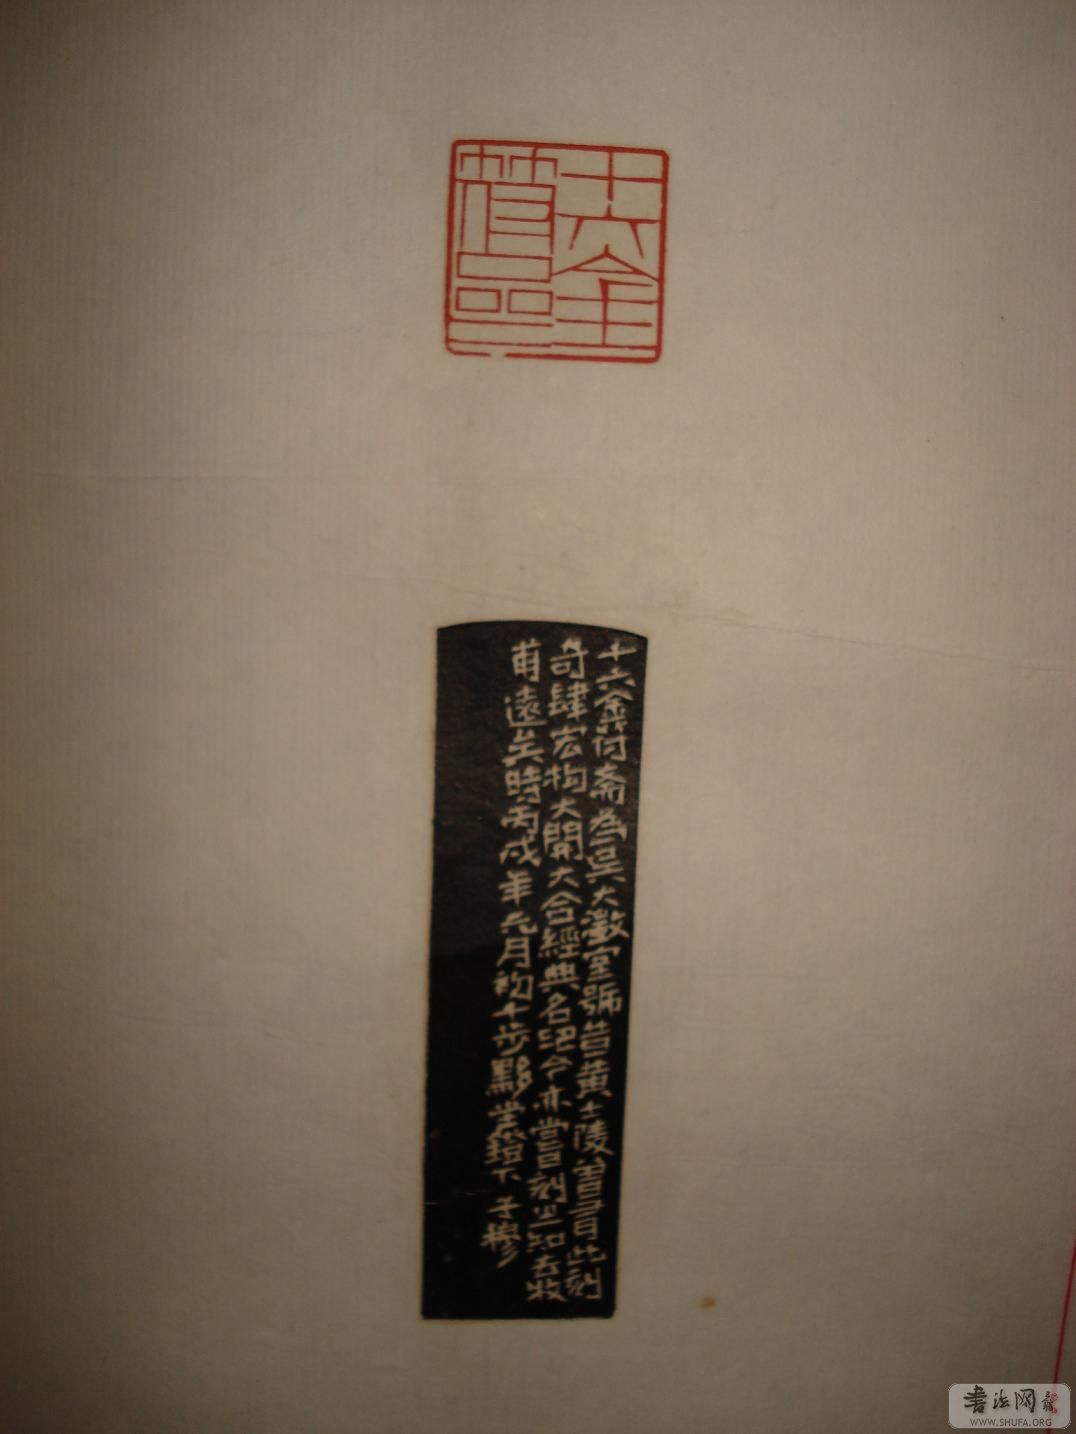 十六金符齋
十六金符齋為吳大澂室號昔黃士陵曾有此刻
奇肆宏构大開大合經典名絕今亦嘗刻此知去牧
甫遠矣時丙戌年元月初十步黟燈下子穆
书法网
WWW.SHUFA.ORG